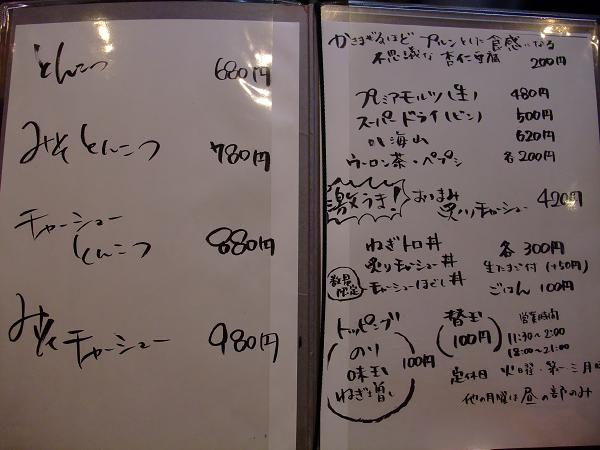 とんこつ 680円
みそとんこつ 780円
チャーシュー
とんこつ 880円
みそチャーシュー 980円
かきまぜるほど プルンとした食感になる
不思議な 杏仁豆腐 200円
プレミアモルツ(生) 480円
スーパードライ(ビン) 500円
八海山 620円
ウーロン茶・ペプシ 各200円
激うま! おつまみ
炙りチャーシュー 420円
ねぎトロ丼 各300円
炙りチャーシュー丼 生たまご付(+50円)
数量
限定
チャーシューほぐし丼 ごはん 100円
トッピング
のり
味玉
ねぎ増し
100円
替玉
(100円)
営業時間
11:30~2:00
18:00~21:00
定休日 火曜・第一三月曜
他の月曜は昼の部のみ